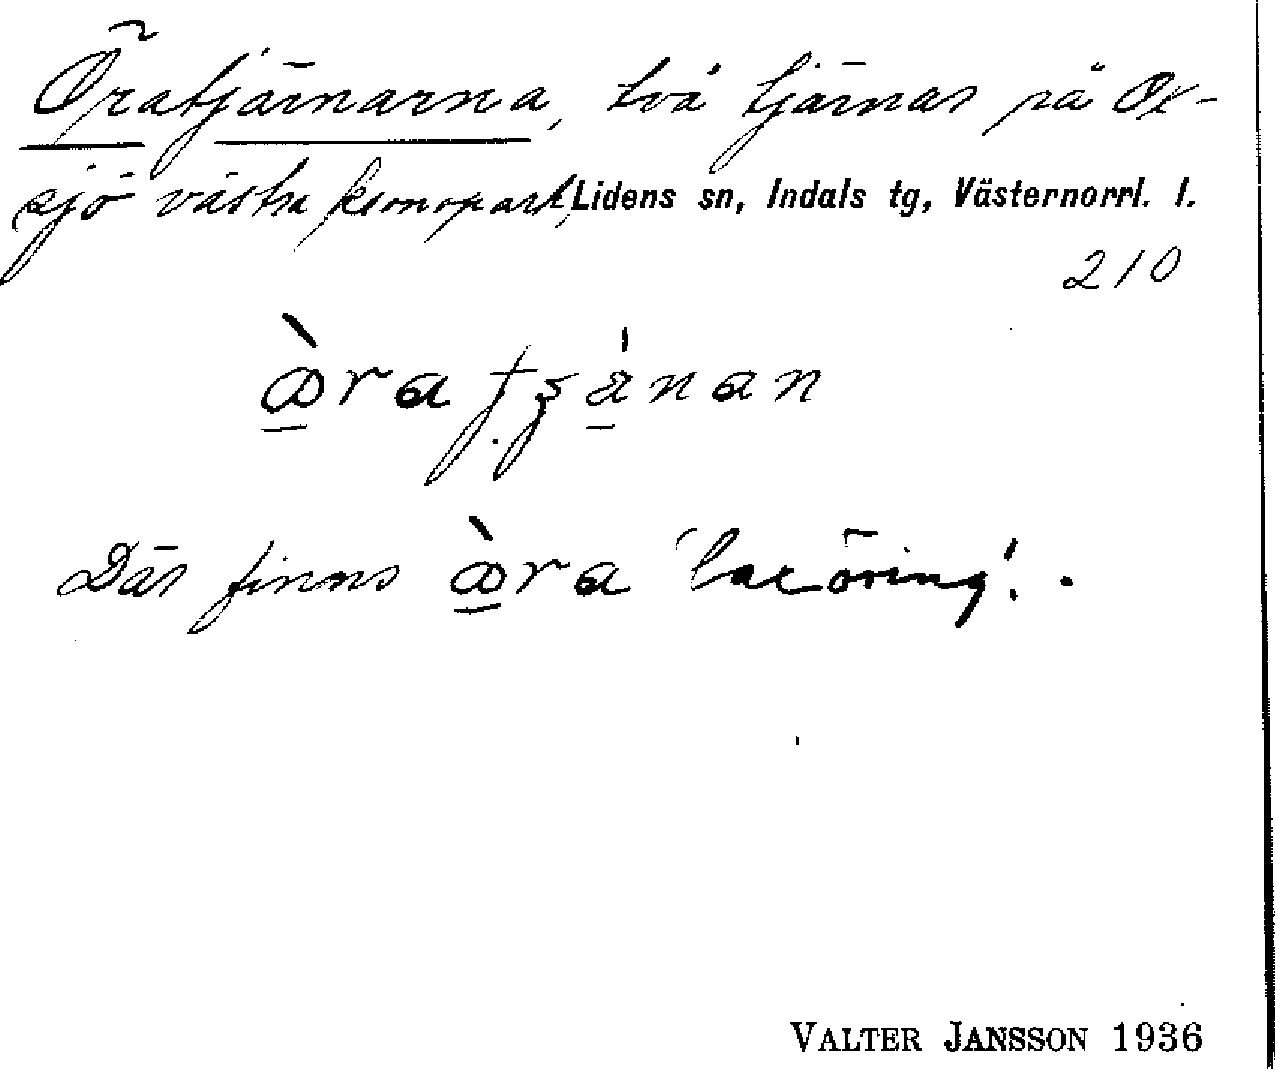 Öratjärnarna, två tjärnar på Ox-
sjö västra kronopark, Lidens sn, Indals tg, Västernorrl. l.
210
Där finns 'laxöring'.
VALTER JANSSON 1936